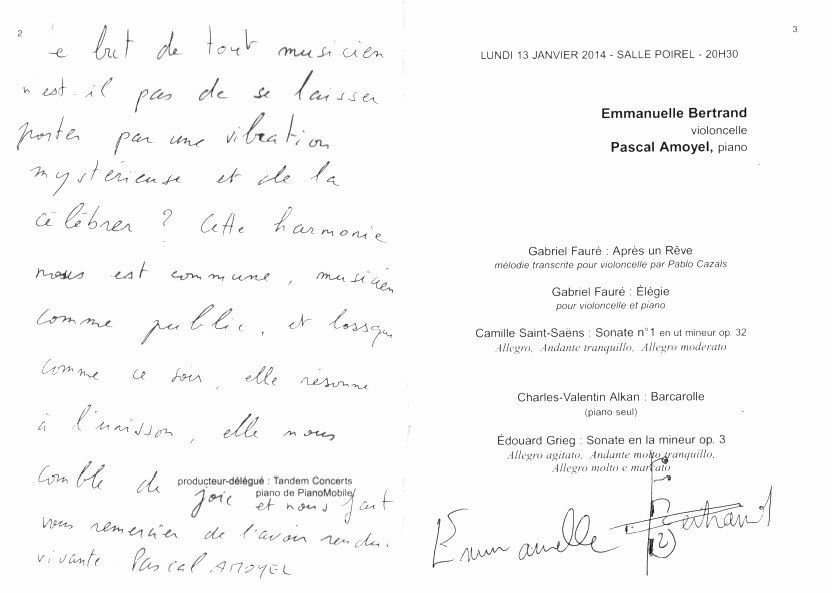 2
Le but de tout musicien
n'est-il pas de se laisser
porter par une vibration
mystérieuse et de la
célébrer ? Cette harmonie
nous est commune, musicien
comme public, et lorsque
comme ce soir, elle résonne
à l'unisson, elle nous
comble de joie et nous fait
producteur-délégué : Tandem Concerts
piano de PianoMobile
vous remercier de l'avoir rendu
vivante. Pascal AMOYEL
3
LUNDI 13 JANVIER 2014 - SALLE POIREL - 20H30
Emmanuelle Bertrand
violoncelle
Pascal Amoyel, piano
Gabriel Fauré : Après un Rêve
mélodie transcrite pour violoncelle par Pablo Cazals
Gabriel Fauré : Élégie
pour violoncelle et piano
Camille Saint-Saëns : Sonate n°1 en ut mineur op. 32
Allegro, Andante tranquillo, Allegro moderato
Charles-Valentin Alkan : Barcarolle
(piano seul)
Édouard Grieg : Sonate en la mineur op. 3
Allegro agitato, Andante molto tranquillo,
Allegro molto e marcato
Emmanuelle Bertrand